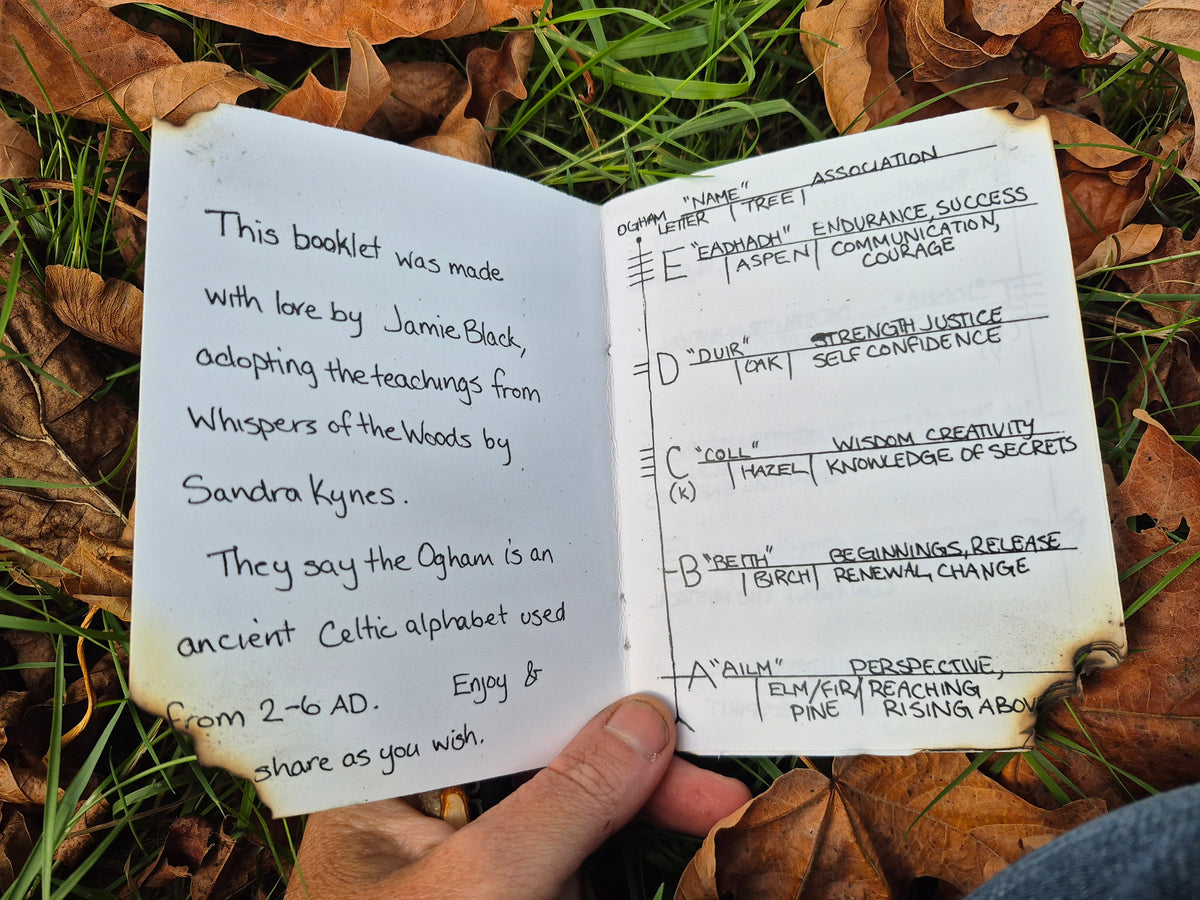 This booklet was made
with love by Jamie Black,
adopting the teachings from
Whispers of the Woods by
Sandra Kynes.
They say the Ogham is an
ancient Celtic alphabet used
from 2-6 AD. Enjoy &
share as you wish.
OGHAM LETTER "NAME" | TREE | ASSOCIATION
E "EADHADH" ENDURANCE, SUCCESS
| ASPEN | COMMUNICATION,
COURAGE
D "DUIR" STRENGTH JUSTICE
| OAK | SELF CONFIDENCE
C "COLL" WISDOM CREATIVITY
(K) | HAZEL | KNOWLEDGE OF SECRETS
B "BEITH" BEGINNINGS, RELEASE
| BIRCH | RENEWAL, CHANGE
A "AILM" PERSPECTIVE,
| ELM/FIR/ | REACHING
PINE RISING ABOV